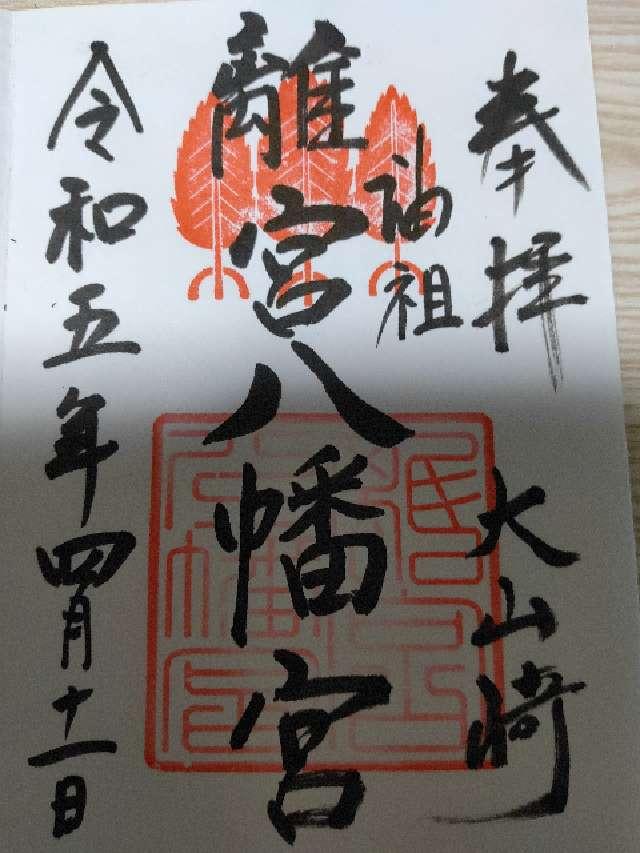 奉拝
大山崎
油祖
離宮八幡宮
令和五年四月十一日